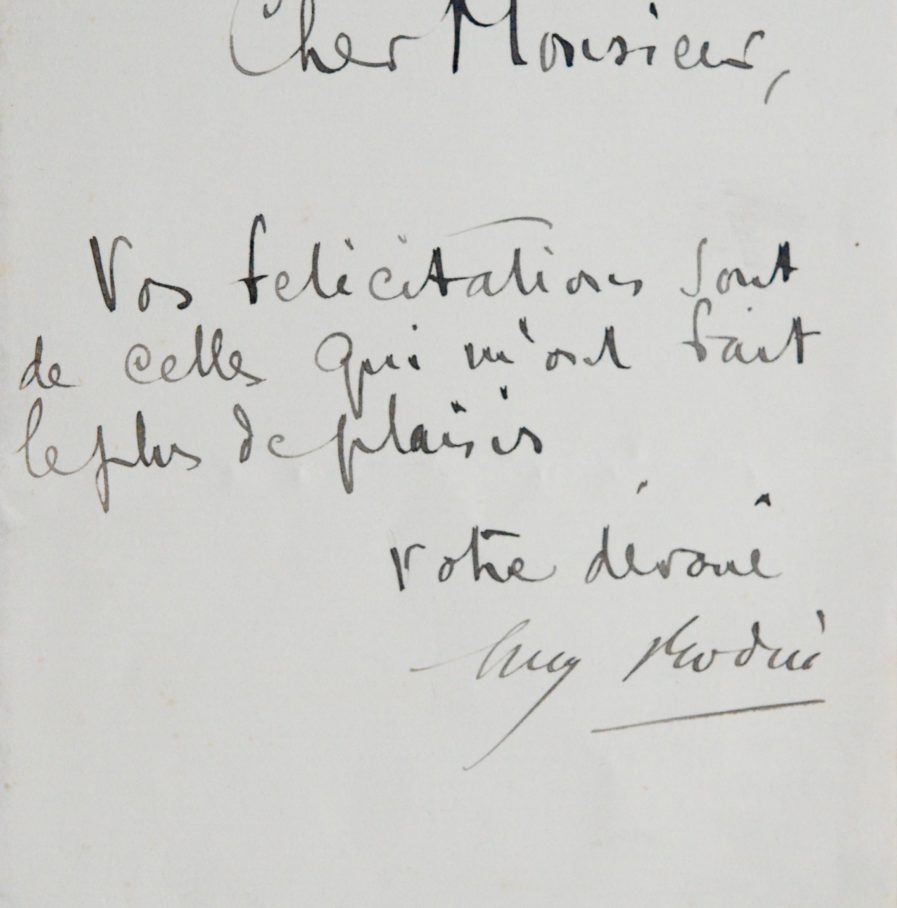 Cher Monsieur,
Vos felicitations sont
de celles qui m'ont fait
le plus de plaisir
votre dévoué
Aug Rodin